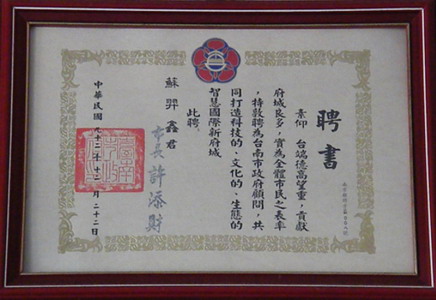 聘書
素仰　台端德高望重,貢獻
府城良多,實為全體市民之表率
,特敦聘為台南市政府顧問,共
同打造科技的、文化的、生態的
智慧國際新府城
此聘
蘇羿鑫君
市長 許添財
中華民國九十二年十二月二十二日